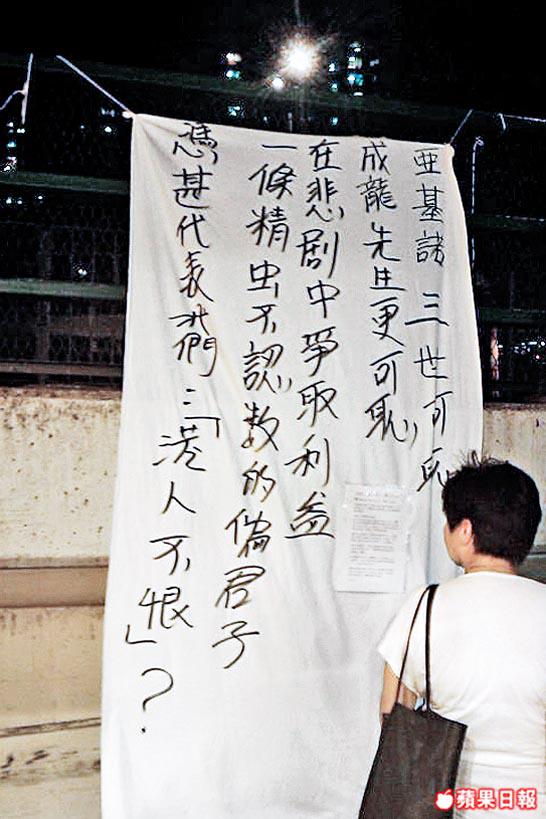 亜基諾三世可恥
成龍先生更可恥
在悲剧中爭取利益
一條精虫不認数的偽君子
憑甚代表我們：「港人不恨」？
蘋果日報